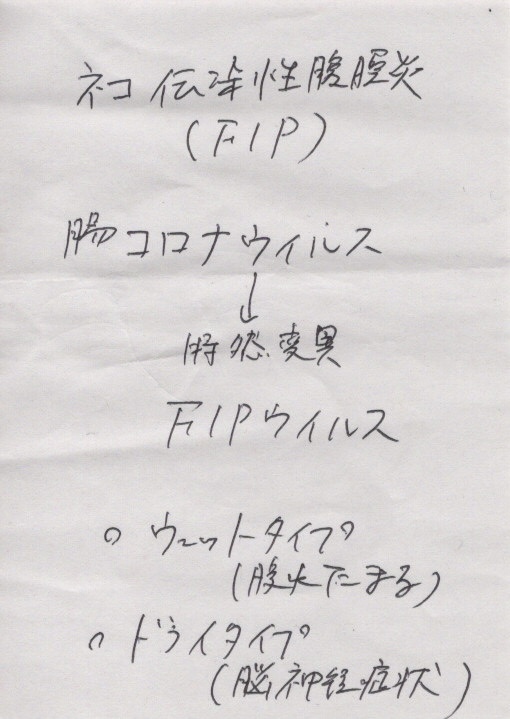 ネコ 伝染性腹腔炎
(FIP)
腸コロナウイルス
↓
時然変異
FIPウイルス
○ ウェットタイプ
(腹水たまる)
○ ドライタイプ
(脳神経症状)